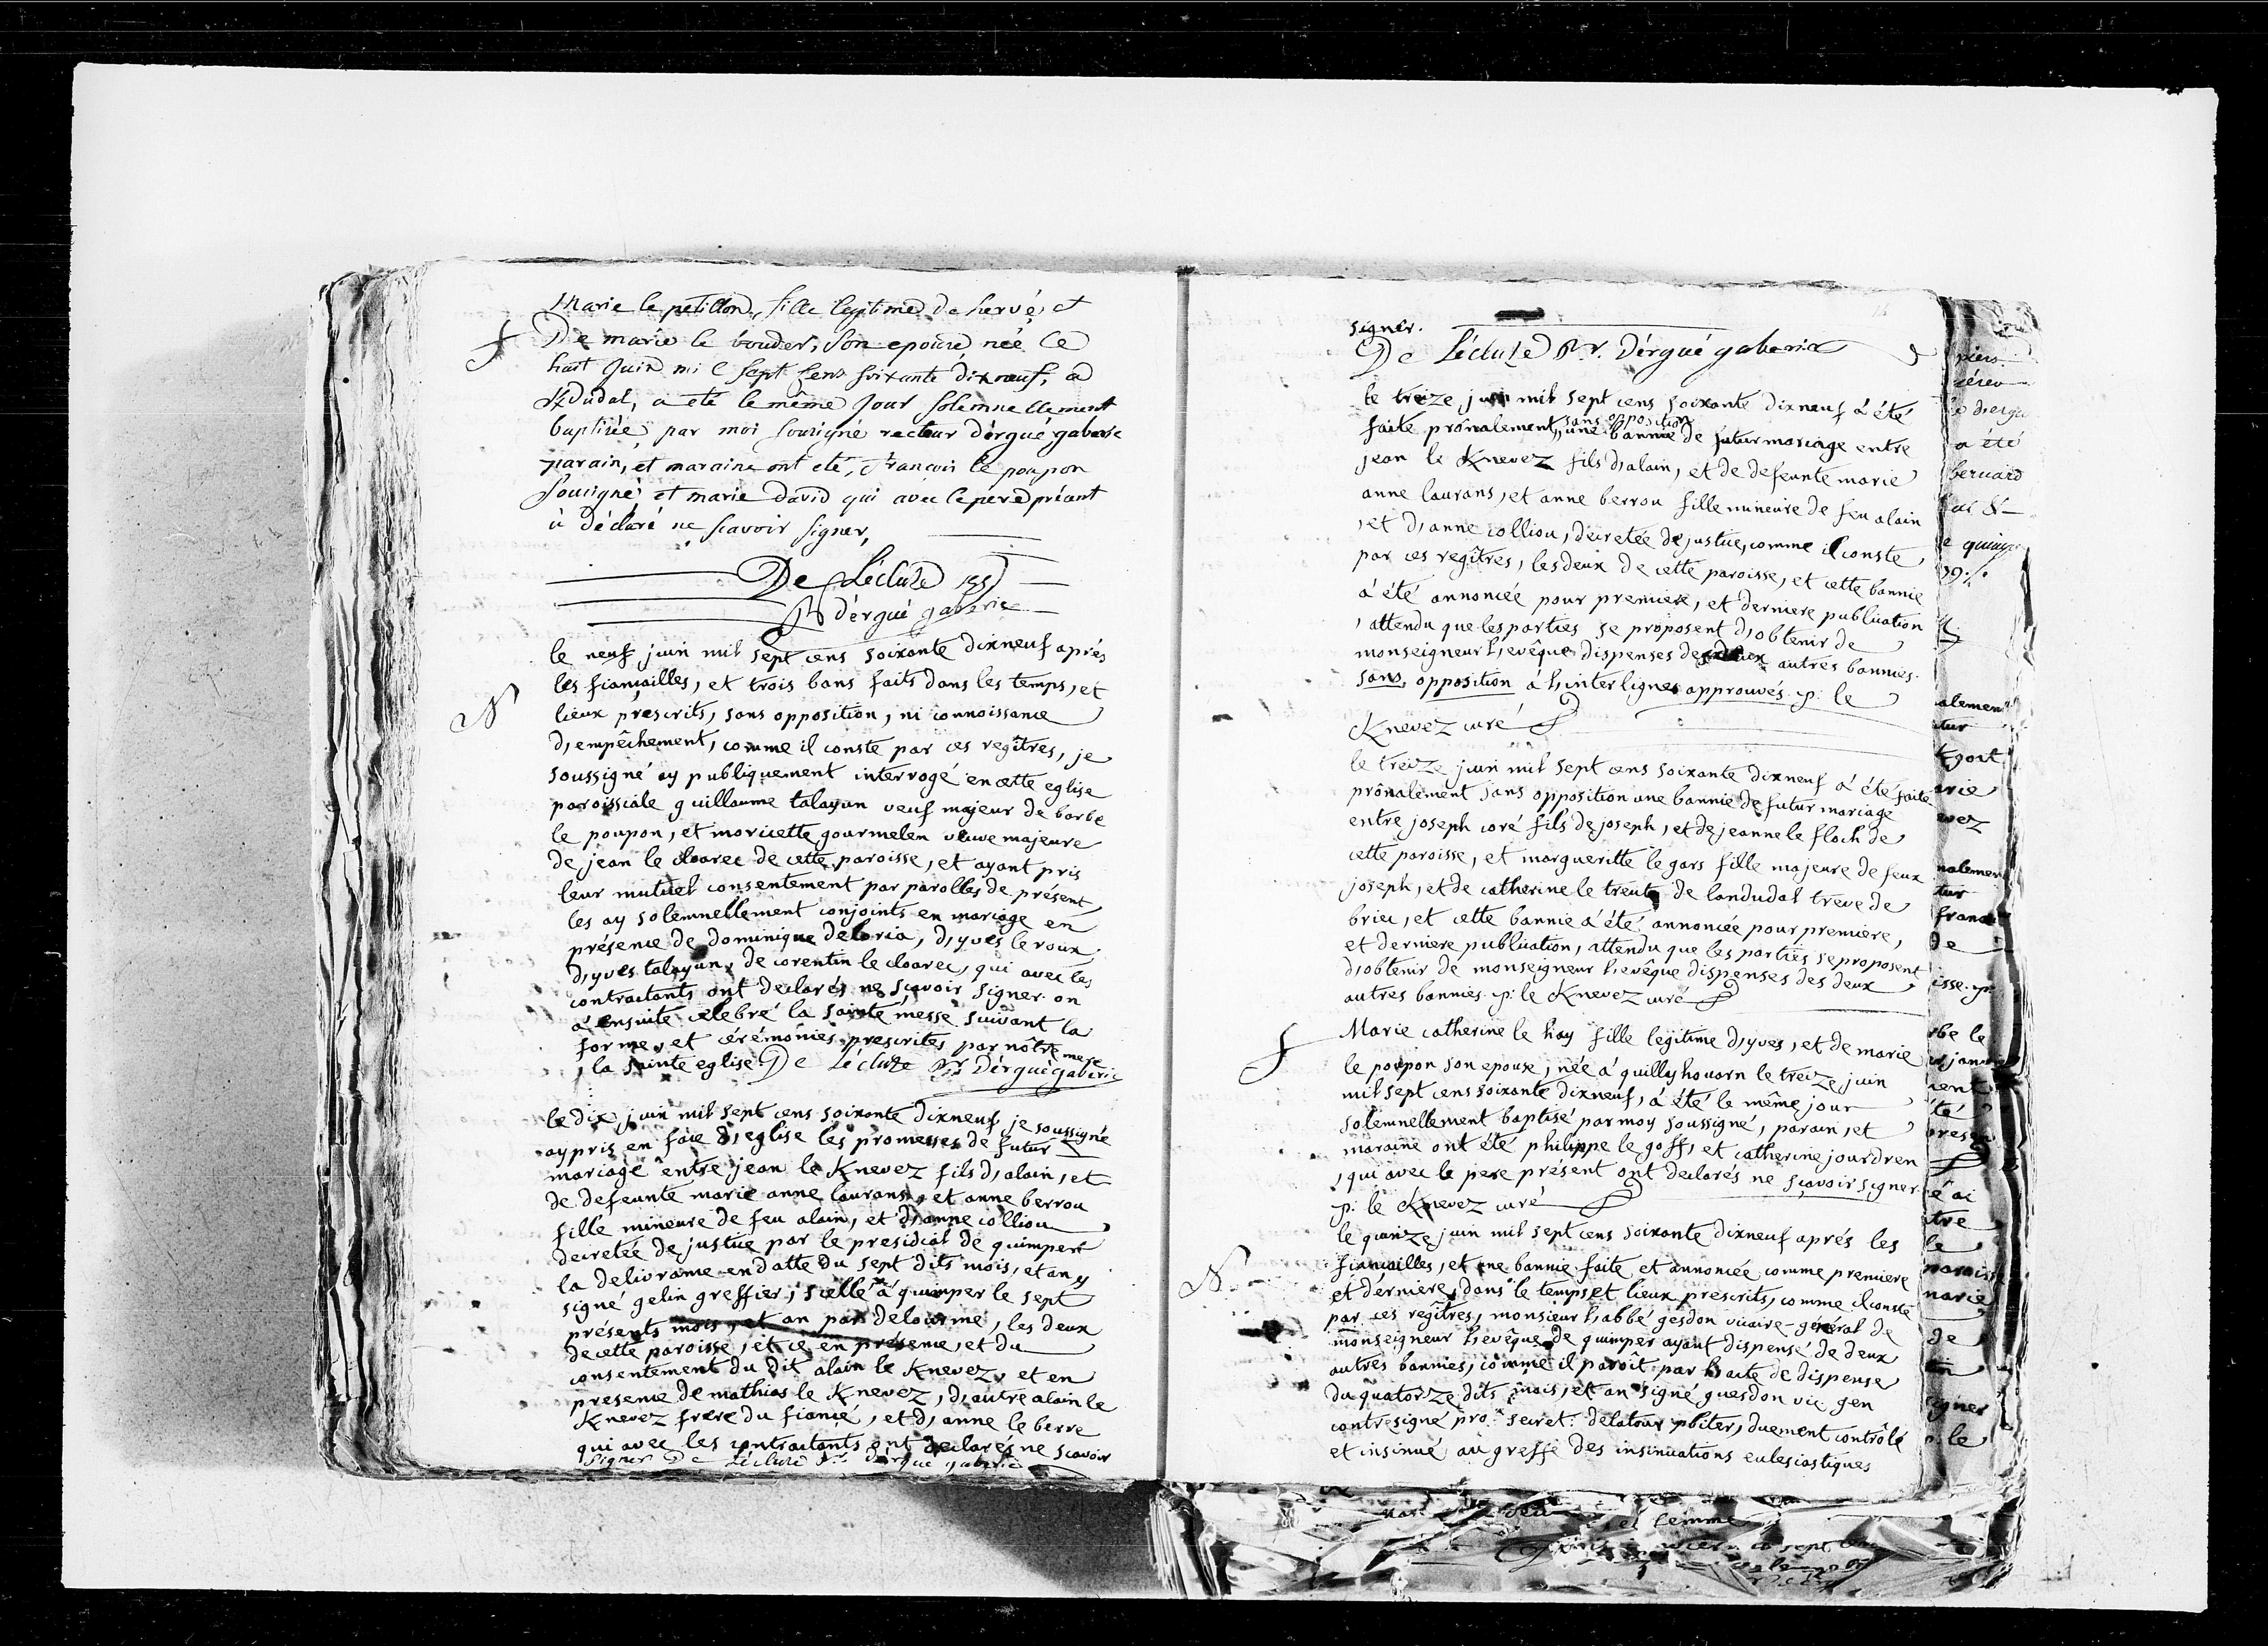 Marie le petillon, fille legitime de hervé, et
f De marie le vouder, son epouse née le
huit Juin mil sept cens soixante dix neuf, a
été le même jour solemnellement
baptisée par moi sousigné recteur d'ergué gaberic
parain, et maraine ont eté, francois le poupon
sousigné, et marie david qui avec le pere présent
a déclaré ne scavoir signer,
De Lécluze
Rr d'ergué gaberic
le neuf juin mil sept cens soixante dixneuf aprés
les fiançailles, et trois bans faits dans les temps, et
N lieux prescrits, sans opposition, ni connoissance
d'empêchement, comme il conste par ces regîtres, je
soussigné ay publiquement interrogé en cette eglise
paroissiale guillaume talayun veuf majeur de barbe
le poupon, et moricette gourmelen veuve majeure
de jean le cloarec de cette paroisse, et ayant pris
leur mutuel consentement par parolles de présent
les ay solemnellement conjoints en mariage en
présence de dominique deloria, d'yves le roux
d'yves talayun, de corentin le cloarec, qui avec les
contractants ont declarés ne scavoir signer on
a ensuite celebré la sainte messe suivant la
forme, et cérémonies prescrites par nôtre mere
la sainte eglise. De Lécluze Rr D'ergué gaberic
le dix juin mil sept cens soixante dixneuf je soussigné
ay pris en face d'eglise les promesses de futur
mariage entre jean le Knevez fils d'alain, et
de defeunte marie anne laurans, et anne berrou
fille mineure de feu alain, et d'anne colliou
decretée de justice par le presidial de quimper
la delivrance en datte du sept dits mois, et an
signé gelin greffier, scellé à quimper le sept
présents mois, et an par delourme, les deux
de cette paroisse, et ce en présence, et du
consentement du dit alain le Knevez, et en
presence de mathias le Knevez, d'autre alain le
Knevez frere du fiancé, et d'anne le berre
qui avec les contractants ont declarés ne scavoir
signer De Lécluze Rr d'ergué gaberic
signer.
De Lécluze Rr. D'ergué gaberic
le treize juin mil sept cens soixante dixneuf à été
faite prônalement sans opposition une bannie de futur mariage entre
jean le Knevez fils d'alain, et de defeunte marie
anne laurans, et anne berrou fille mineure de feu alain
, et d'anne colliou, decretée de justice, comme il conste
par ces regîtres, les deux de cette paroisse, et cette bannie
à été annoncée pour premiere, et derniere publication
, attendu que les parties se proposent d'obtenir de
monseigneur l'evêque dispenses des deux autres bannies.
sans opposition à l'interligne approuvés. p: le
Knevez curé
le treize juin mil sept cens soixante dixneuf à été faite
prônalement sans opposition une bannie de futur mariage
entre joseph coré fils de joseph, et de jeanne le floch de
cette paroisse, et margueritte le gars fille majeure de feux
joseph, et de catherine le treut de landudal treve de
briec, et cette bannie à été annoncée pour premiere,
et derniere publication, attendu que les parties se proposent
d'obtenir de monseigneur l'evêque dispenses des deux
autres bannies. p: le Knevez curé
f Marie catherine le hay fille legitime d'yves, et de marie
le poupon son epouse, née à quillyhouarn le treize juin
mil sept cens soixante dixneuf, à été le même jour
solemnellement baptisé par moy soussigné, parain, et
maraine ont été philippe le goff, et catherine jourdren
, qui avec le pere présent ont declarés ne scavoir signer.
p: le Knevez curé
le quinze juin mil sept cens soixante dixneuf aprés les
N fiançailles, et une bannie faite et annoncée comme premiere
et derniere, dans le temps et lieux prescrits, comme il conste
par ces regîtres, monsieur l'abbé gesdon vicaire-général de
monseigneur l'evêque de quimper ayant dispensé de deux
autres bannies, comme il paroit par l'acte de dispense
du quatorze dits mois, et an signé guesdon vic. gen
contresigné pro. secret. delatour pbiter, duement contrôlé
et insinué au greffe des insinuations eclesiastiques